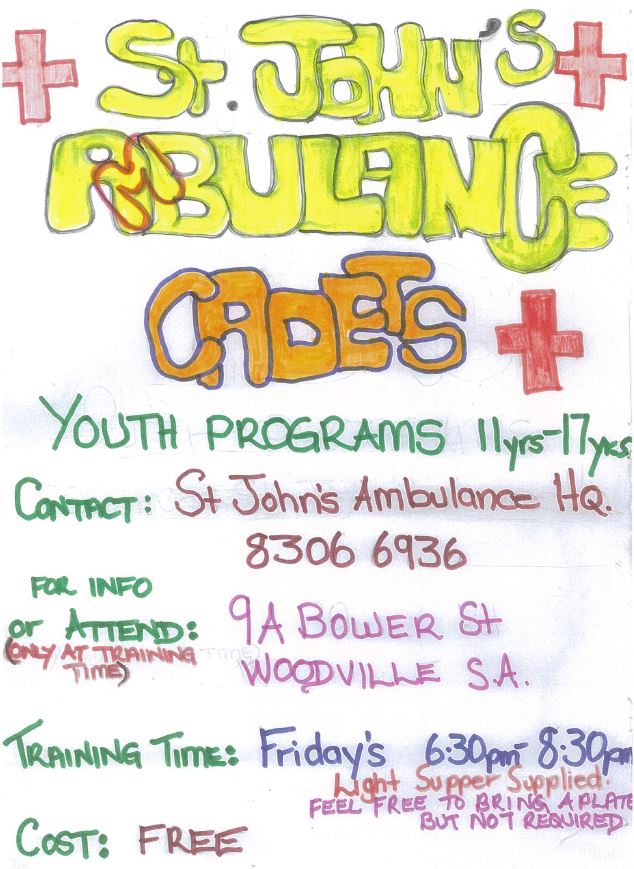 St. JOHN'S
AMBULANCE
CADETS
YOUTH PROGRAMS 11yrs-17yrs
CONTACT: St John's Ambulance HQ.
8306 6936
FOR INFO
or ATTEND: 9A BOWER St
(ONLY AT TRAINING TIME)
TIME) WOODVILLE S.A.
TRAINING TIME: Friday's 6:30pm- 8:30pm
Light Supper Supplied.
FEEL FREE TO BRING A PLATE
BUT NOT REQUIRED.
COST: FREE